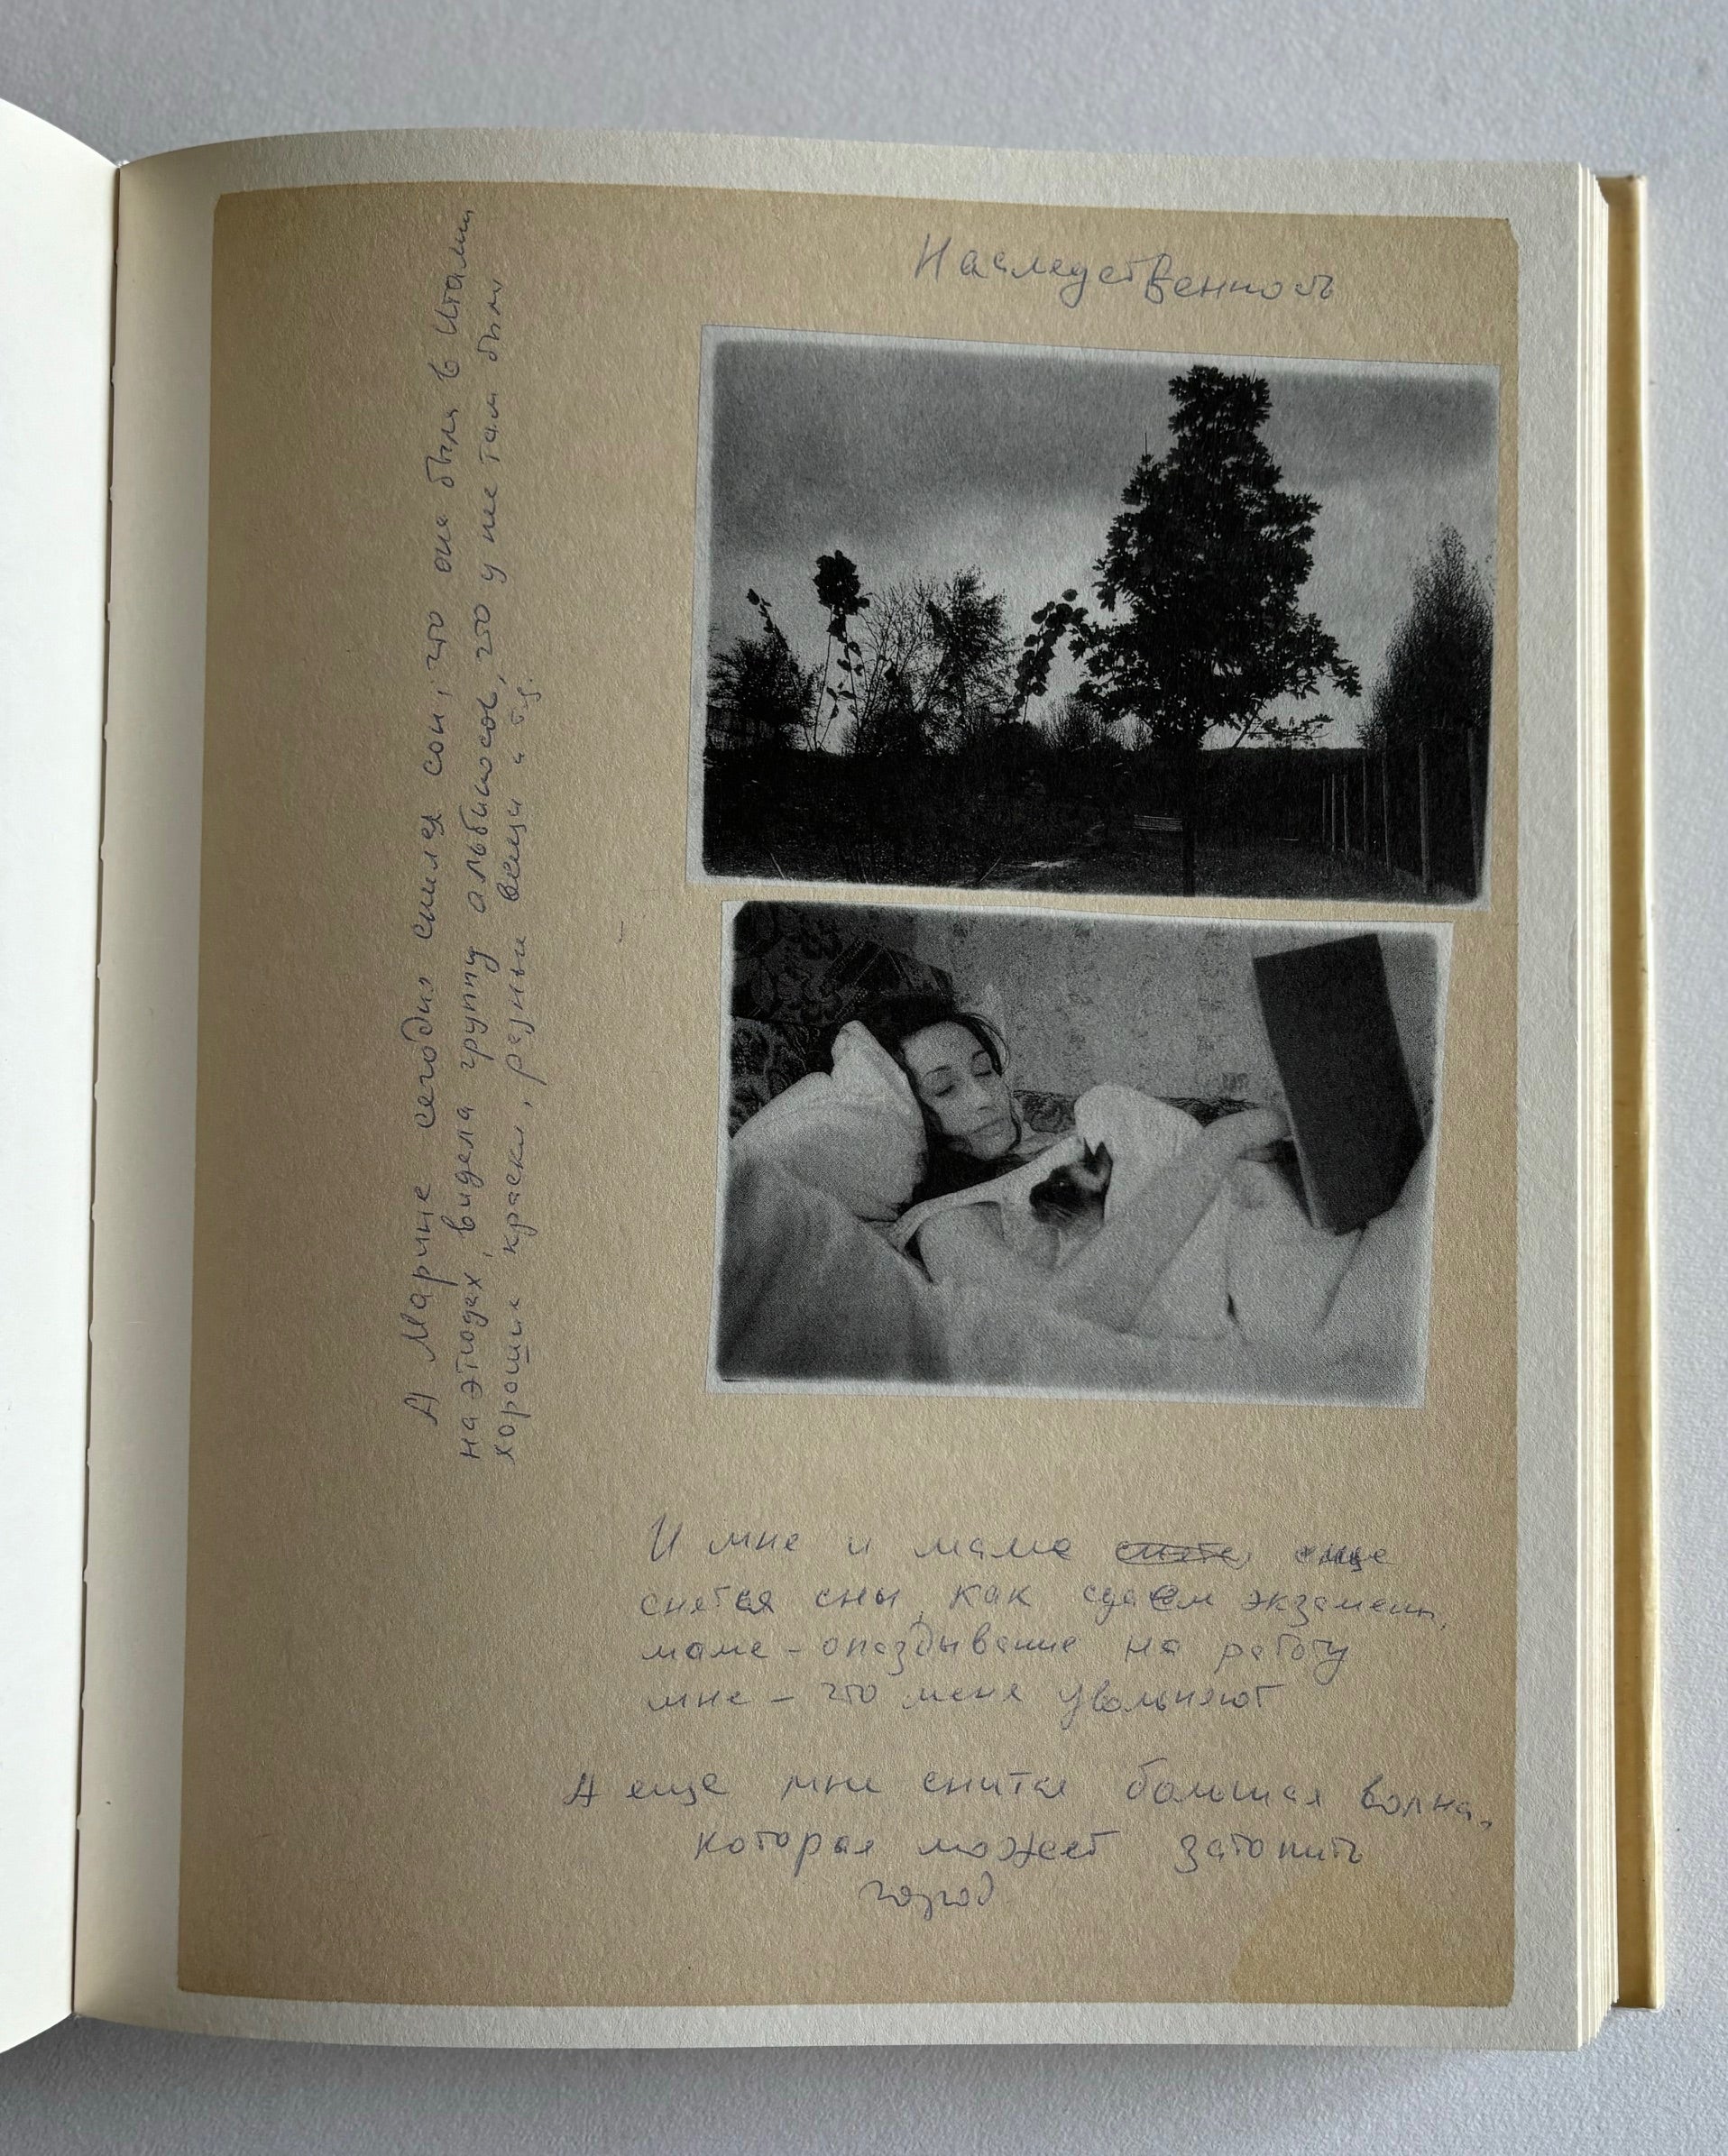 Наследственность
А Марине сегодня снился сон, что она была в Италии
на этюдах, видела группу альбиносов, что у нее там были
хорошие краски, разные вещи и т.д.
И мне и маме еще
снятся сны, как сдаем экзамены,
маме - опаздывание на работу
мне - что меня увольняют
А еще мне снится большая волна,
которая может затопить
город